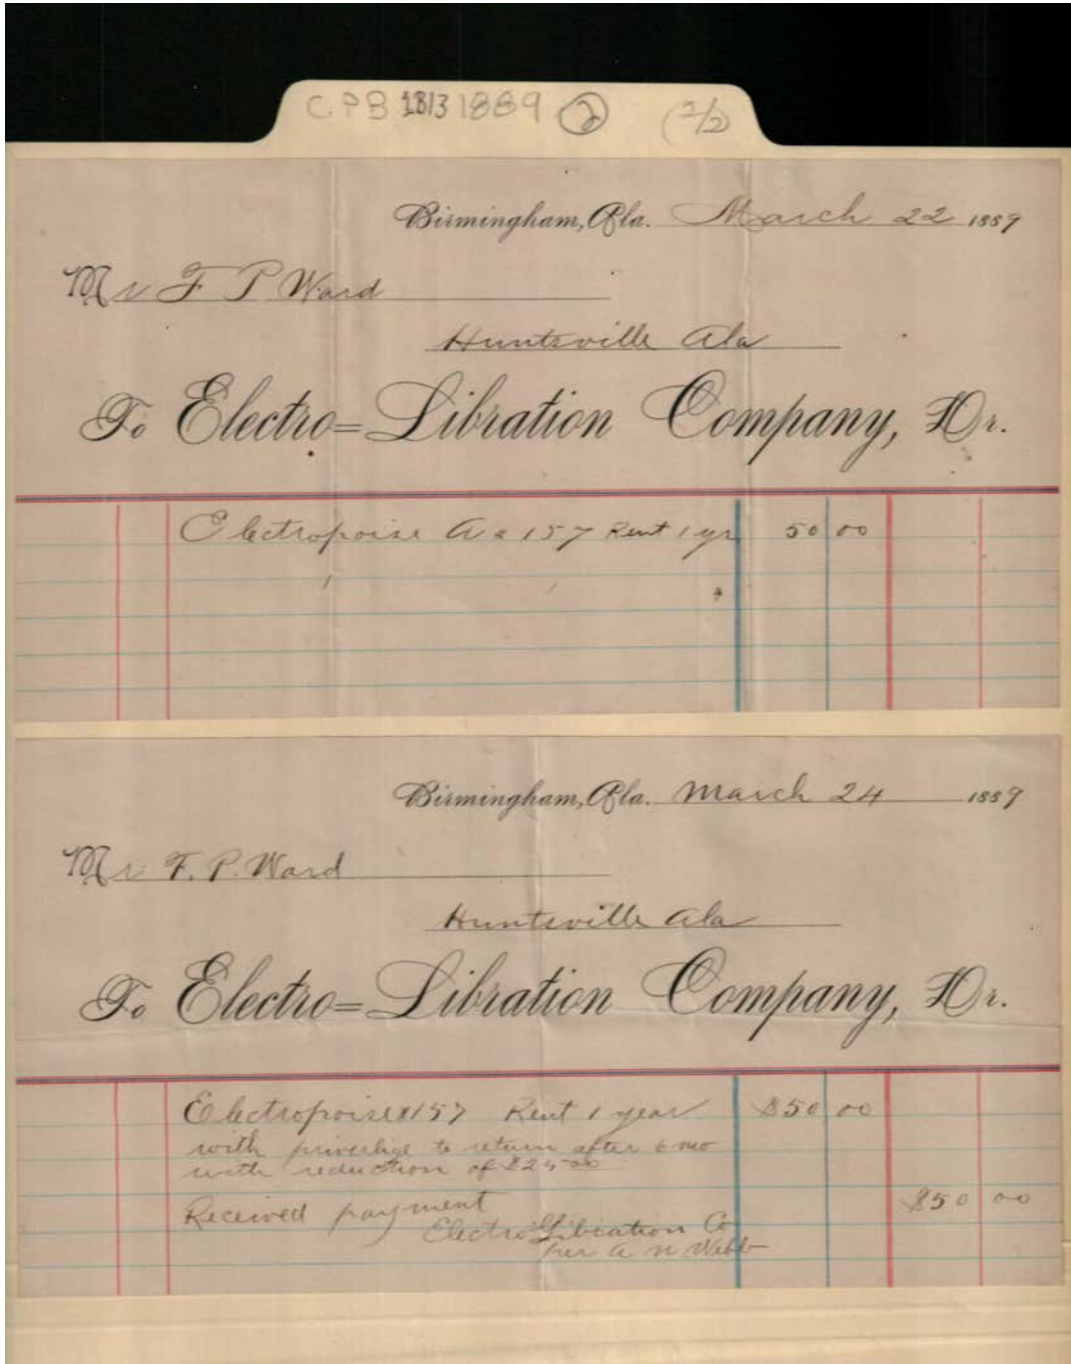 C.P.B 1813 1889 2 (2/2)
Birmingham, Ala. March 22 1889
Mr F P Ward
Huntsville Ala
To Electro=Libration Company, Dr.
Electropoise 157 Rent 1 yr 50 00
Birmingham, Ala. March 24 1889
Mr F. P. Ward
Huntsville Ala
To Electro=Libration Company, Dr.
Electropoise 157 Rent 1 year $50 00
with priverlige to return after 6 mo
with reduction of $25 00
Received payment $50 00
Electro Libration Co
per A N Webb